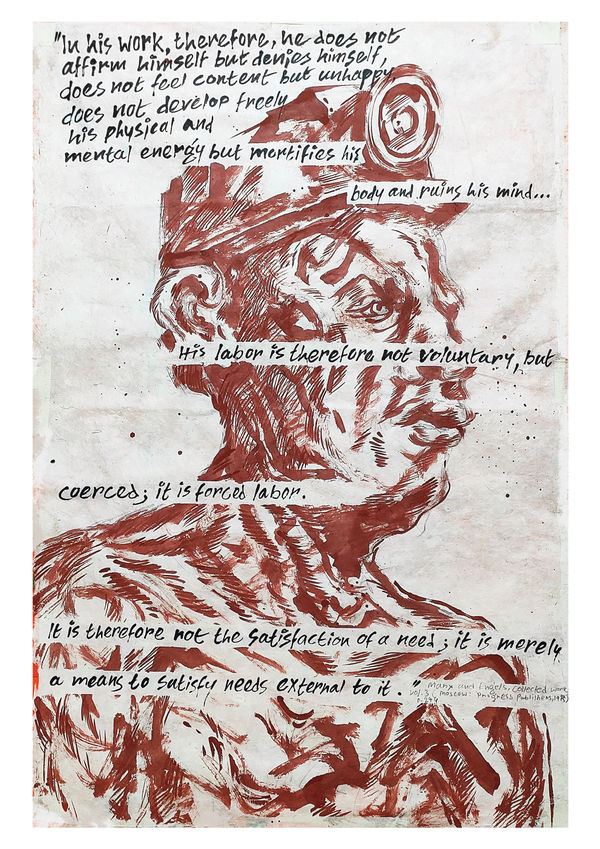 "In his work, therefore, he does not
affirm himself but denies himself,
does not feel content but unhappy,
does not develop freely
his physical and
mental energy but mortifies his
body and ruins his mind...
His labor is therefore not voluntary, but
coerced; it is forced labor.
It is therefore not the satisfaction of a need; it is merely
a means to satisfy needs external to it."
Marx and Engels, Collected Work
vol.3, Moscow: Progress Publishers,